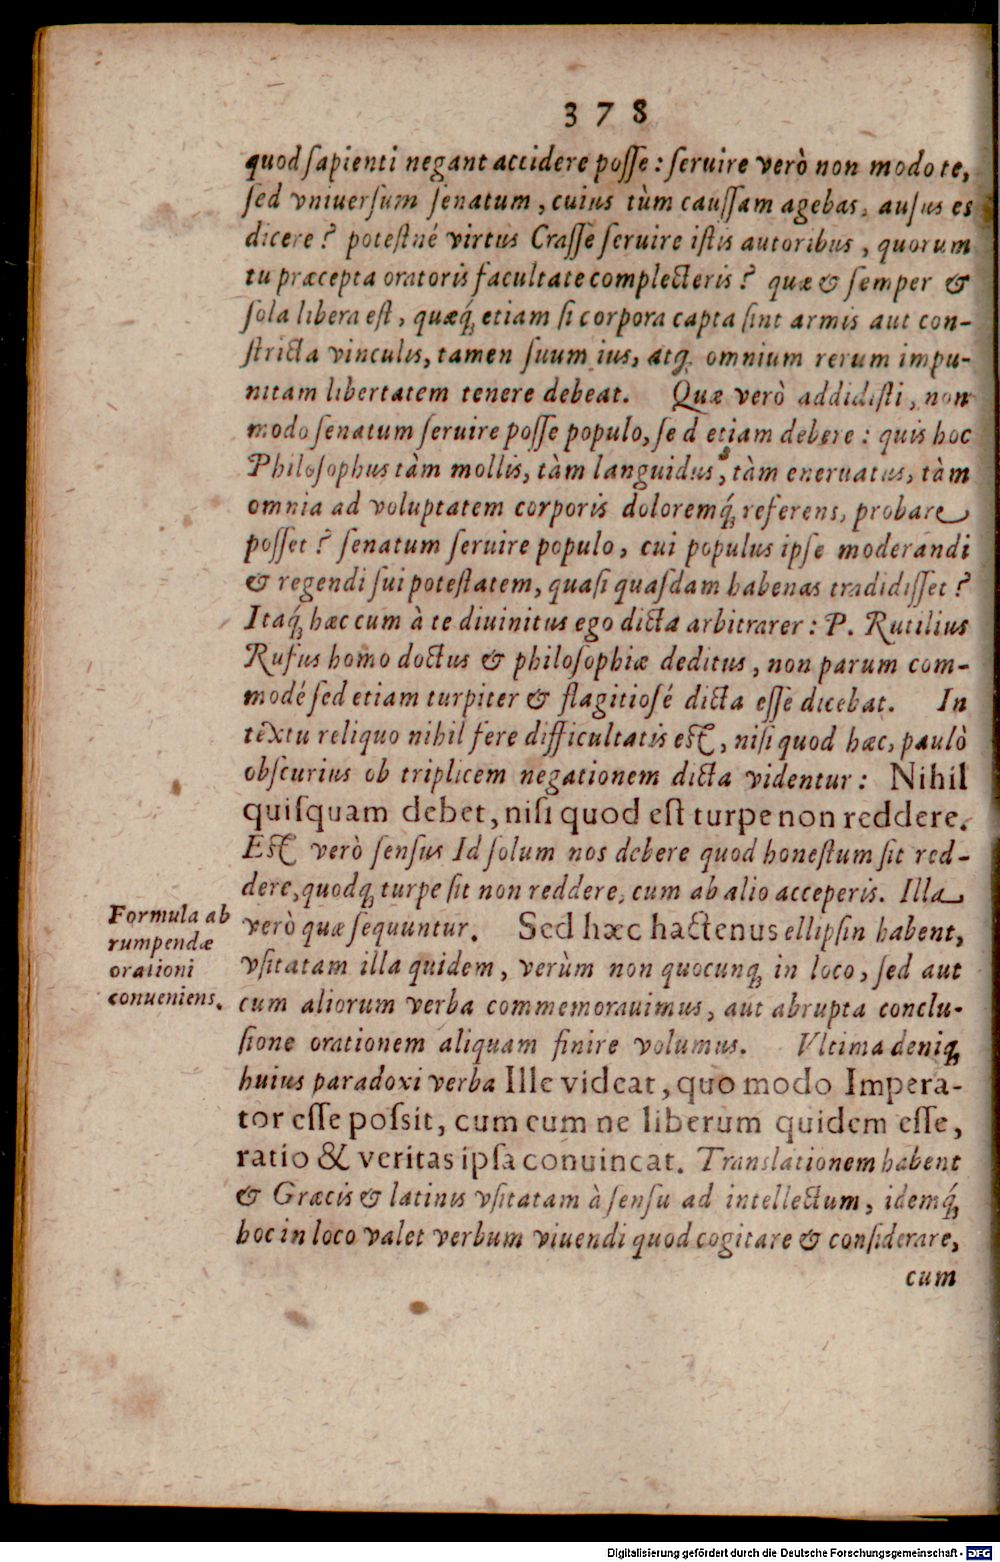 378
quod ſapienti negant accidere poſſe : ſeruire verò non modo te,
ſed vniuerſum ſenatum, cuius tùm cauſſam agebas, auſus es
dicere ? poteſtné virtus Craſſe ſeruire iſtis autoribus, quorum
tu præcepta oratoris facultate complecteris ? quæ & ſemper &
ſola libera eſt, quæq́; etiam ſi corpora capta ſint armis aut con-
ſtricta vinculis, tamen ſuum ius, atq; omnium rerum impu-
nitam libertatem tenere debeat. Quæ verò addidiſti, non
modo ſenatum ſeruire poſſe populo, ſed etiam debere : quis hoc
Philoſophus tàm mollis, tàm languidus, tàm eneruatus, tàm
omnia ad voluptatem corporis doloremq́; referens, probare
poſſet ? ſenatum ſeruire populo, cui populus ipſe moderandi
& regendi ſui poteſtatem, quaſi quaſdam habenas tradidiſſet ?
Itaq́; hæc cum à te diuinitus ego dicta arbitrarer : P. Rutilius
Rufus homo doctus & philoſophiæ deditus, non parum com-
modé ſed etiam turpiter & flagitioſé dicta eſſe dicebat. In
textu reliquo nihil fere difficultatis eſt, niſi quod hæc, paulò
obſcurius ob triplicem negationem dicta videntur : Nihil
quiſquam debet, niſi quod eſt turpe non reddere.
Eſt verò ſenſus Id ſolum nos debere quod honeſtum ſit red-
dere, quodq; turpe ſit non reddere, cum ab alio acceperis. Illa
verò quæ ſequuntur. Sed hæc hactenus ellipſin habent,
vſitatam illa quidem, verùm non quocunq; in loco, ſed aut
cum aliorum verba commemorauimus, aut abrupta conclu-
ſione orationem aliquam finire volumus. Vltima deniq;
huius paradoxi verba Ille videat, quo modo Impera-
tor eſſe poſsit, cum eum ne liberum quidem eſſe,
ratio & veritas ipſa conuincat. Translationem habent
& Græcis & latinis vſitatam à ſenſu ad intellectum, idemq́;
hoc in loco valet verbum viuendi quod cogitare & conſiderare,
cum
Formula ab
rumpendæ
orationi
conueniens.
Digitalisierung gefördert durch die Deutsche Forschungsgemeinschaft - DFG